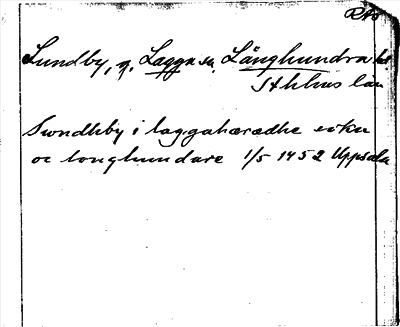 RAö
Lundby, g. Lagga sn, Långhundra hd
Sthlms län
Swndhby i laggahæradhe sokn
oc longhundare 1/5 1452 Uppsala